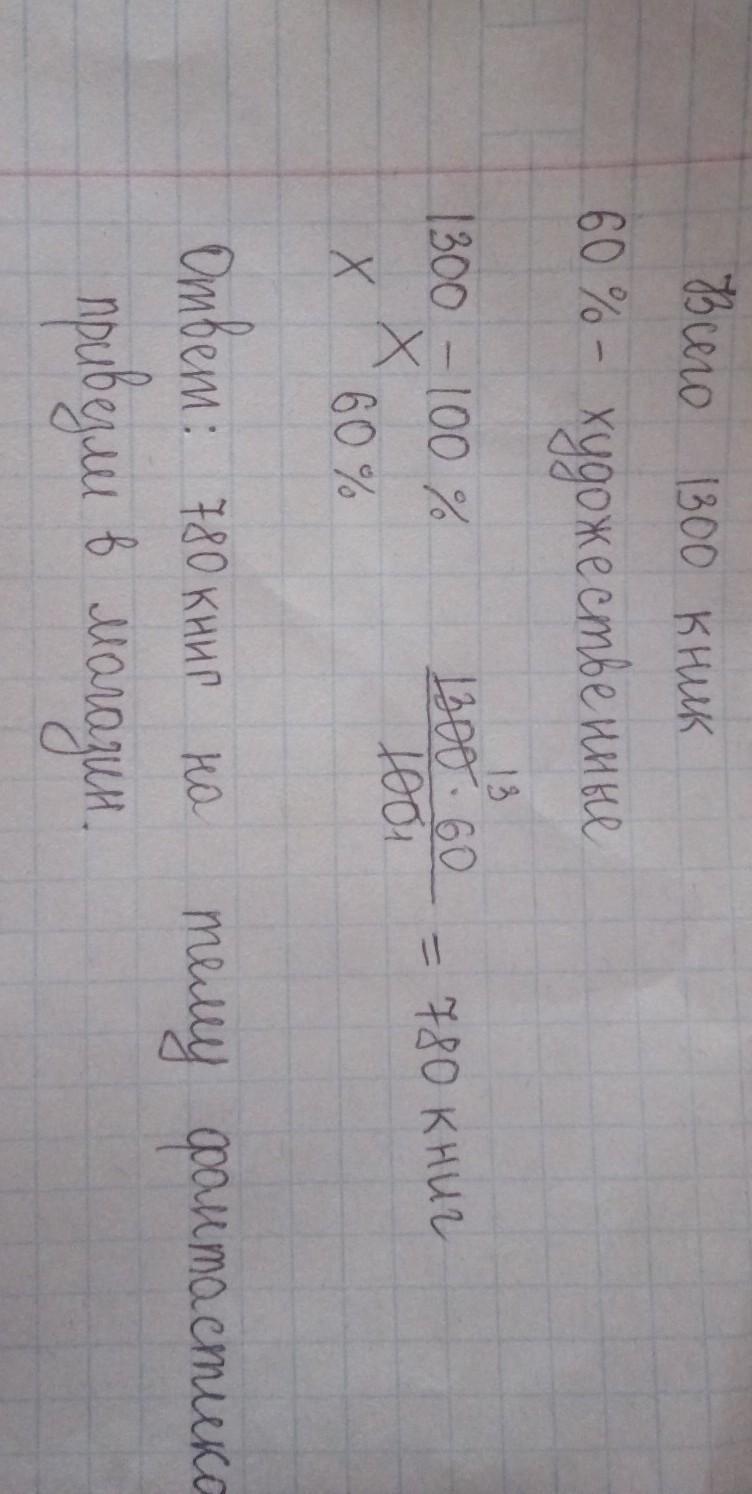 Всего 1300 кник
60 % - художественные
1300 - 100 %
X
X 60 %
13
1300 · 60
100 1
= 780 книг
Ответ: 780 книг на тему фантастика
привезли в магазин.